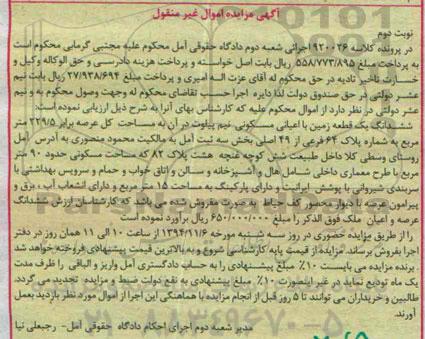 آگهی مزایده اموال غیر منقول
نوبت دوم
در پرونده کلاسه ۹۲۰۰۲۶ اجرائی شعبه دوم دادگاه حقوقی آمل محکوم علیه مجتبی گرمابی محکوم است
به پرداخت مبلغ ۵۵۸/۷۷۳/۸۹۵ ریال بابت اصل خواسته و پرداخت هزینه دادرسی و حق الوکاله وکیل و
خسارت تاخیر تادیه در حق محکوم له آقای عزت اله امیری و پرداخت مبلغ ۲۷/۹۳۸/۶۹۴ ریال بابت نیم
عشر دولتی در حق صندوق دولت لذا دایره اجرا حسب تقاضای محکوم له وجهت وصول محکوم به و نیم
عشر دولتی در نظر دارد از اموال محکوم علیه که کارشناس بهای آنرا به شرح ذیل ارزیابی نموده است:
ششدانگ یک قطعه زمین با اعیانی مسکونی نیم پیلوت در آن به مساحت کل عرصه برابر ۲۲۹/۵ متر
مربع به شماره پلاک ۶۴ فرعی از ۴۹ اصلی بخش سه ثبت آمل به مالکیت محمود منصوری به آدرس آمل
روستای وسطی کلا داخل طبیعت شش کوچه غنچه هشت پلاک ۸۲ که مساحت مسکونی حدود ۹۰ متر
مربع با طرح معماری داخلی شامل هال و آشپزخانه و سالن و اتاق خواب و حمام و سرویس بهداشتی با
سربندی شیروانی با پوشش ایرانیت و دارای پارکینگ به مساحت ۱۵ متر مربع و دارای انشعاب آب ، برق و
پیرامون عرصه با دیوار محصور کف حیاط به صورت مفروش شده می باشد که کارشناسان ارزش ششدانگ
عرصه و اعیان ملک فوق الذکر را مبلغ ۶۵۰/۰۰۰/۰۰۰ ریال برآورد نموده است
را از طریق مزایده حضوری در روز سه شنبه مورخه ۱۳۹۴/۱۱/۶ از ساعت ۱۰ الی ۱۱ همان روز در دفتر
اجرا بفروش برساند. مزایده از قیمت پایه کارشناسی شروع و به بالاترین قیمت پیشنهادی فروخته خواهد شد
برنده مزایده می بایست ۱۰٪ مبلغ پیشنهادی را به حساب دادگستری آمل واریز و الباقی را ظرف مدت
یک ماه تودیع نماید در غیر اینصورت ۱۰٪ مبلغ پیشنهادی به نفع دولت ضبط و مزایده تجدید می گردد.
طالبین و خریداران می توانند تا ۵ روز قبل از انجام مزایده با هماهنگی این اجرا از اموال مورد نظر بازدید بعمل
آورند.
مدیر شعبه دوم اجرای احکام دادگاه حقوقی آمل- رجبعلی نیا